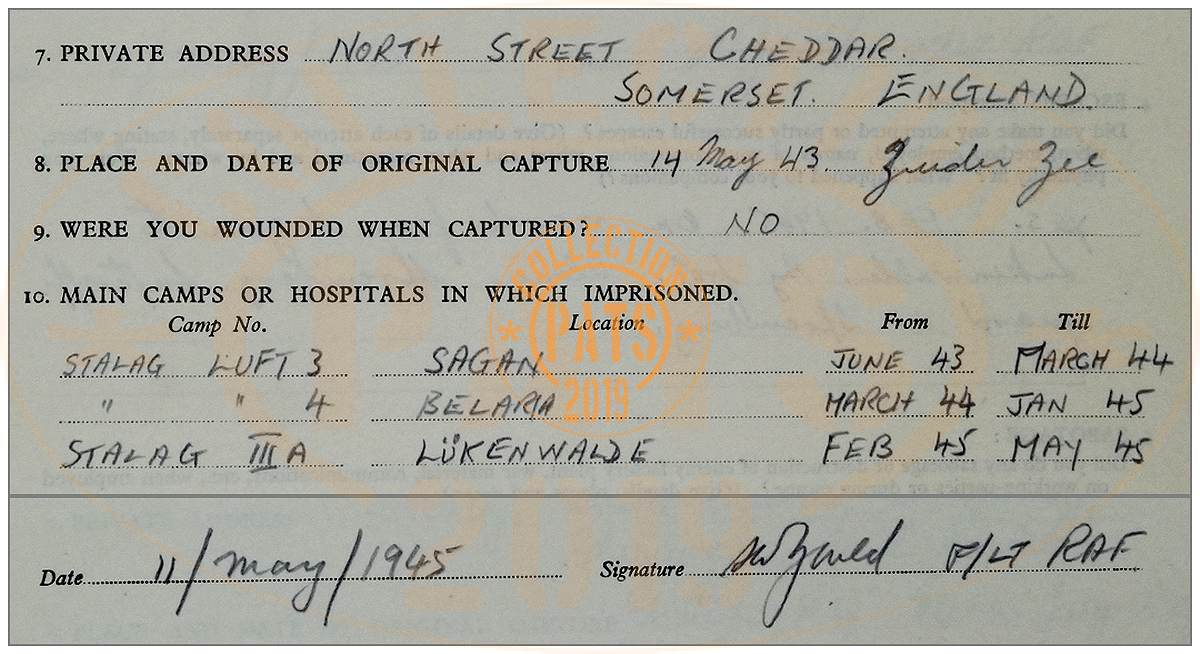 7. PRIVATE ADDRESS NORTH STREET CHEDDAR.
SOMERSET. ENGLAND.
8. PLACE AND DATE OF ORIGINAL CAPTURE 14 May 43 Zuider Zee
9. WERE YOU WOUNDED WHEN CAPTURED? NO
10. MAIN CAMPS OR HOSPITALS IN WHICH IMPRISONED.
Camp No. Location From Till
STALAG LUFT 3 SAGAN JUNE 43 MARCH 44
" " 4 BELARIA MARCH 44 JAN 45
STALAG IIIA LÜKENWALDE FEB 45 MAY 45
Date 11/May/1945 Signature F/LT RAF
COLLECTION
PATS
2019